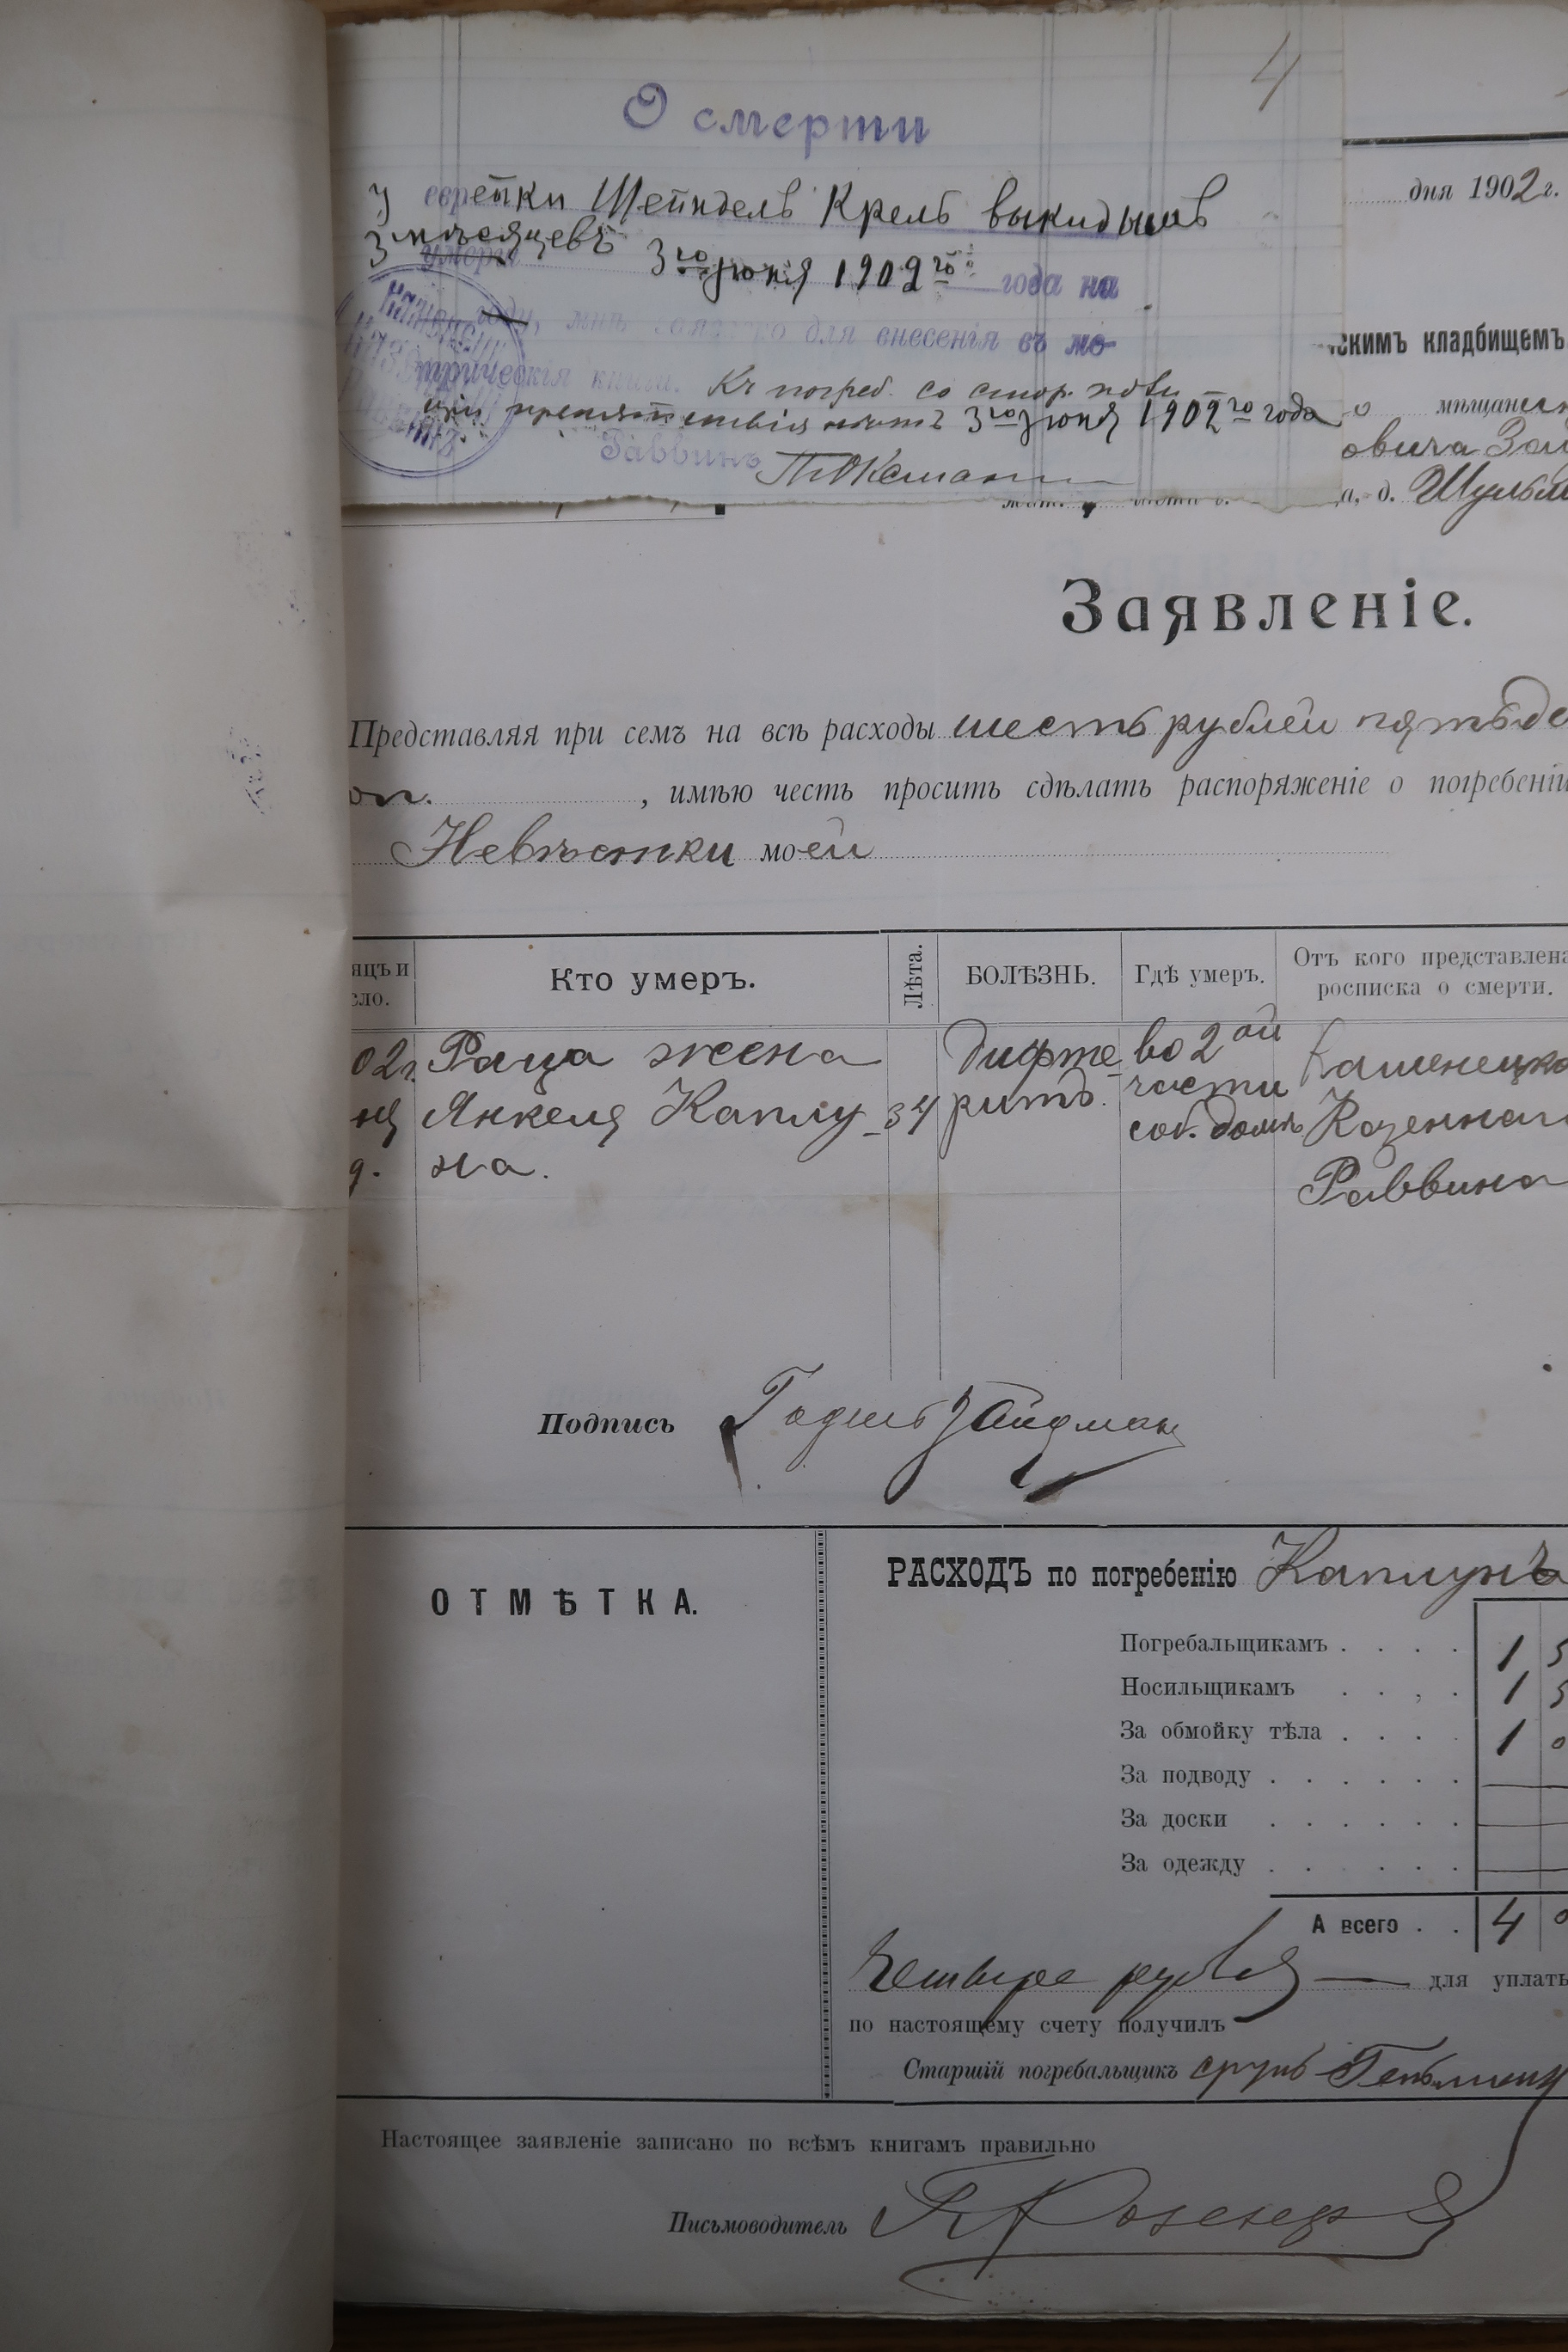 4
О смерти
У еврейки Шейндель Крель выкидышъ
3 мѣсяцевъ
умерла 3го Іюня 1902го года на
году, мнѣ заявлено для внесенія въ ме-
трическія книги. Къ погреб. со стор. поли
ціи препятствія нѣтъ 3го Іюня 1902го года
Раввинъ
дня 1902 г.
скимъ кладбищемъ
о мѣщани
овича Зай
а, д. Шуль
Заявленіе.
Представляя при семъ на всѣ расходы шесть рублей пятьде
оп. , имѣю честь просить сдѣлать распоряженіе о погребеніи
Невѣстки моей
яцъ и
сло.
Кто умеръ.
Лѣта.
БОЛѢЗНЬ.
Гдѣ умеръ.
Отъ кого представлена
росписка о смерти.
02г.
ня
д.
Раца жена
Янкеля Каплу
на.
34
дифте
ритъ.
во 2ой
части
соб. домѣ
Каменецко
Казеннаг
Раввина
Подпись Годель Зайдман
ОТМѢТКА.
РАСХОДЪ по погребенію Каплунъ
Погребальщикамъ . . . . 1 5
Носильщикамъ . . . . 1 5
За обмойку тѣла . . . . 1 0
За подводу . . . . . —
За доски . . . . . —
За одежду . . . . . —
А всего . . 4 0
Четыре рубля — для уплаты
по настоящему счету получилъ
Старшій погребальщикъ Сруль
Настоящее заявленіе записано по всѣмъ книгамъ правильно
Письмоводитель